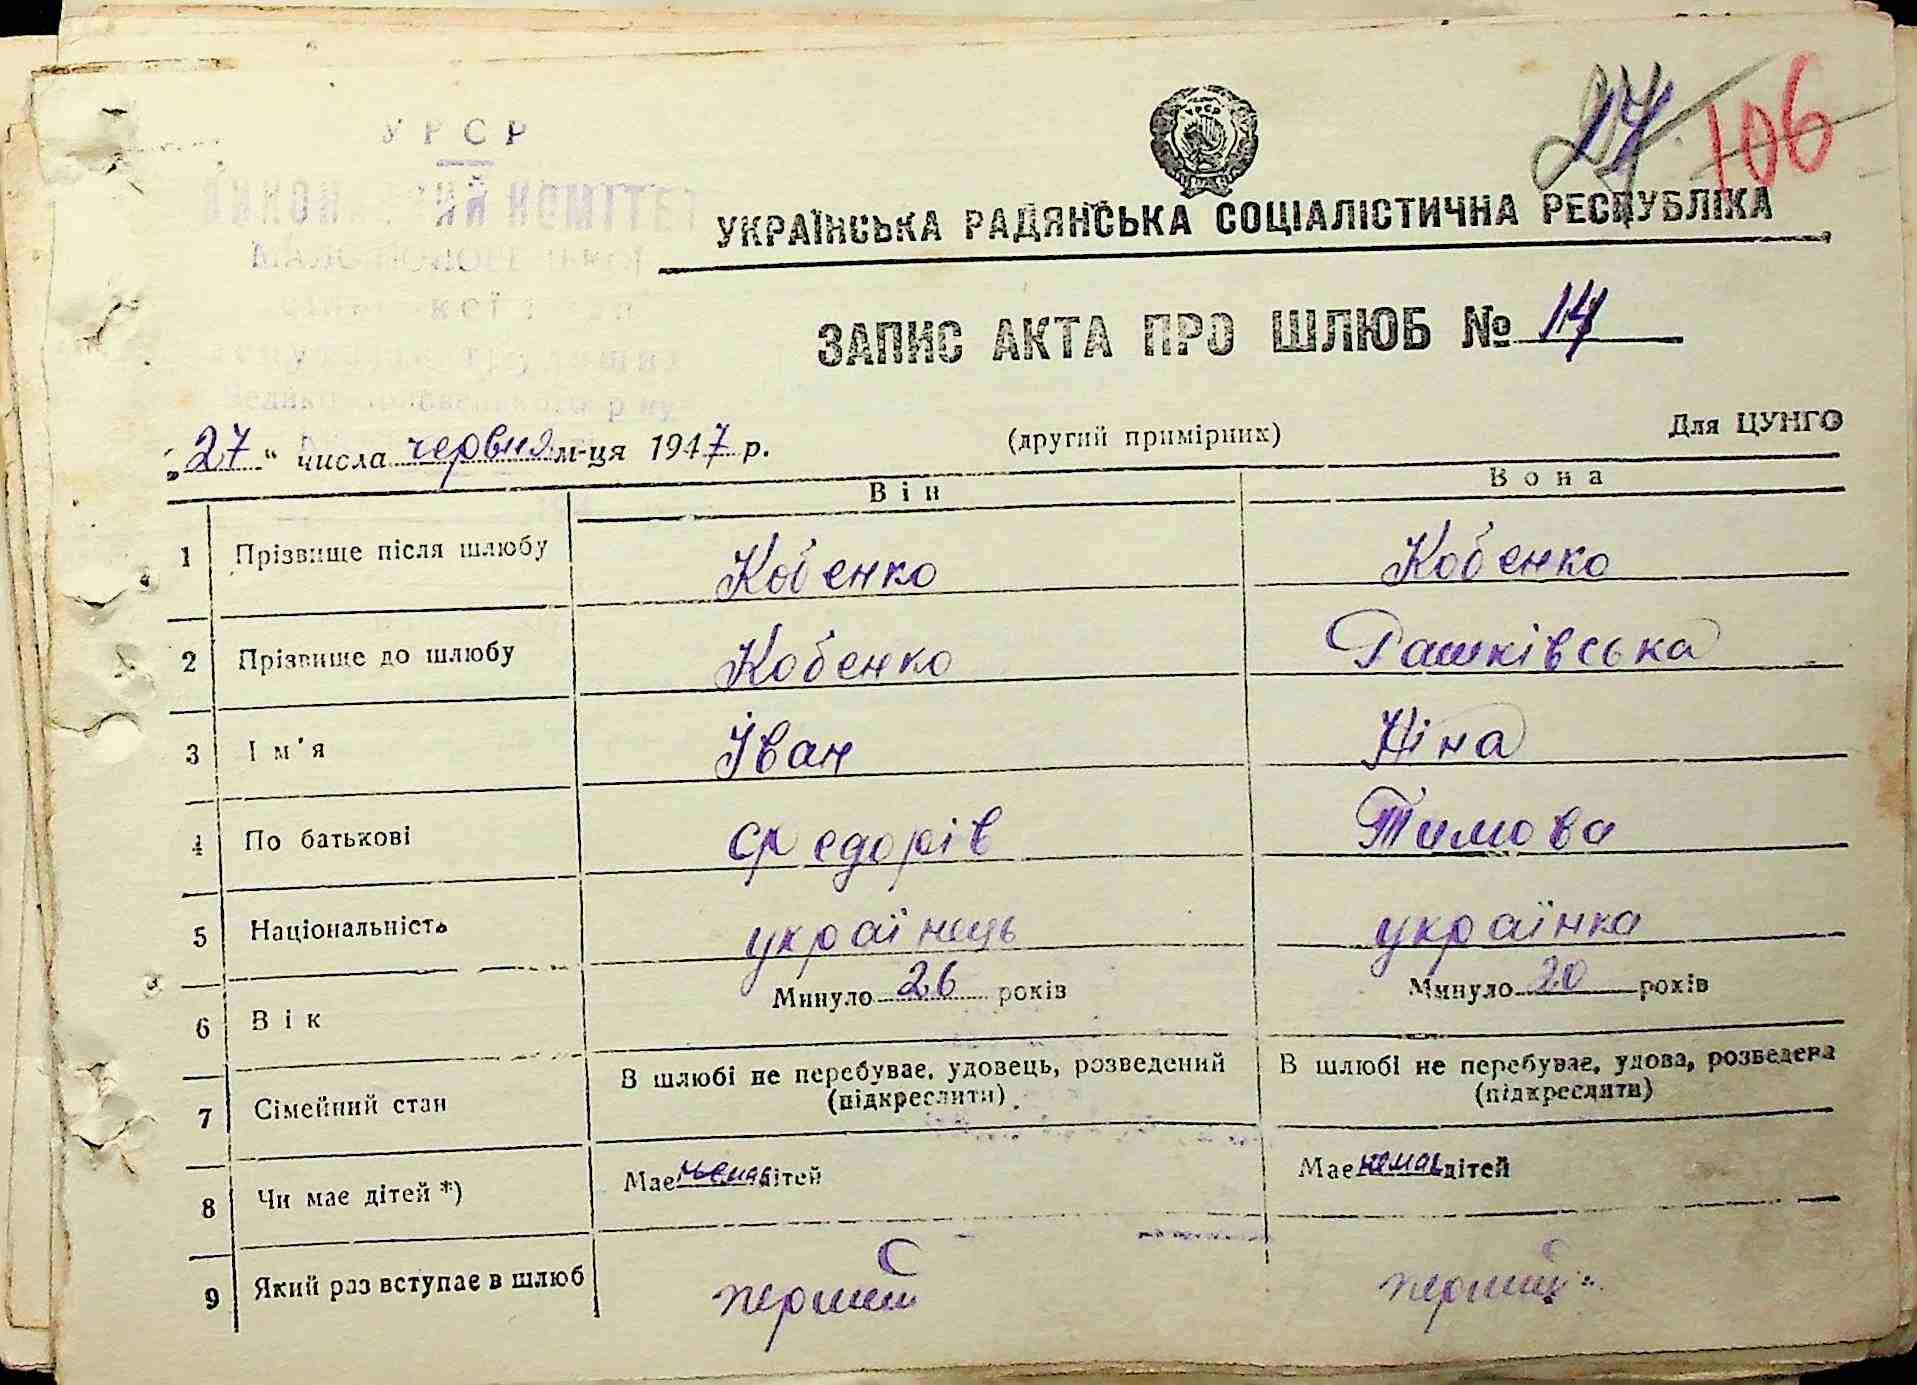 УРСР
КОМІТЕТ
27 106
УКРАЇНСЬКА РАДЯНСЬКА СОЦІАЛІСТИЧНА РЕСПУБЛІКА
ЗАПИС АКТА ПРО ШЛЮБ № 14
„27“ числа червня м-ця 1947 р. (другий примірник) Для ЦУНГО
Він Вона
1 Прізвище після шлюбу Кобенко Кобенко
2 Прізвище до шлюбу Кобенко Рашківська
3 Ім'я Іван Ніна
4 По батькові Федорів Тимова
5 Національність українець українка
6 Вік Минуло 26 років Минуло 20 років
7 Сімейний стан В шлюбі не перебуває, удовець, розведений В шлюбі не перебуває, удова, розведена
(підкреслити) (підкреслити)
8 Чи має дітей *) Має немає дітей Має немає дітей
9 Який раз вступає в шлюб перший перший